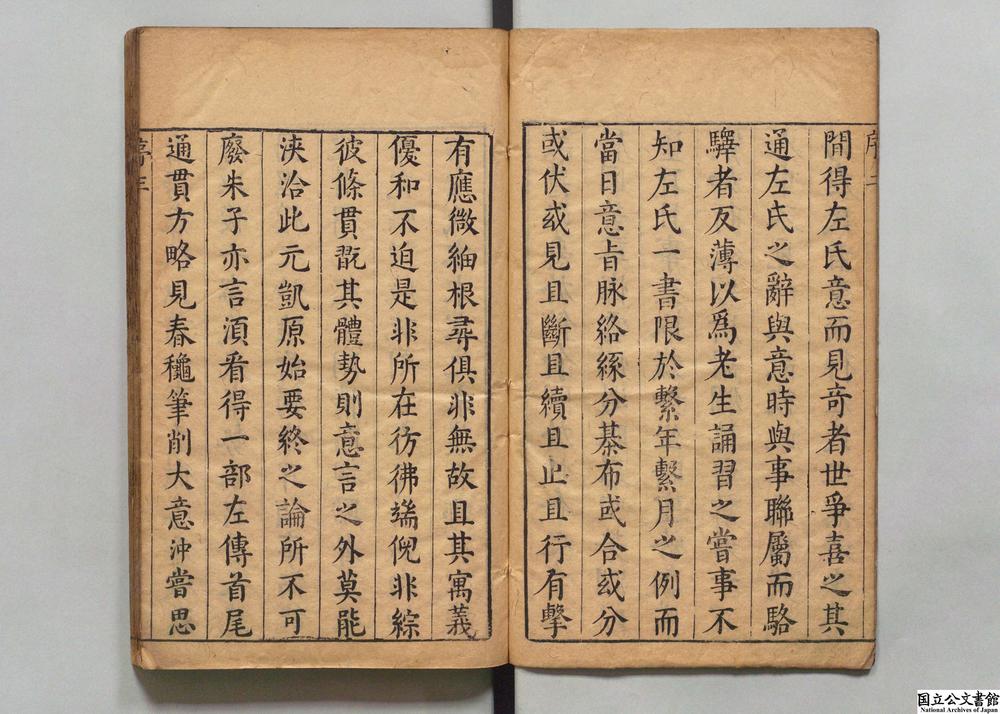 序二
間得左氏意而見竒者世爭喜之其
通左氏之辭與意時與事聯屬而駱
驛者反薄以爲老生誦習之嘗事不
知左氏一書限於繫年繫月之例而
當日意旨脉絡絲分棊布或合或分
或伏或見且斷且續且止且行有擊
有應微紬根尋俱非無故且其寓義
優和不迫是非所在彷彿端倪非綜
彼條貫翫其體勢則意言之外莫能
浹洽此元凱原始要終之論所不可
廢朱子亦言湏看得一部左傳首尾
通貫方略見春龝筆削大意沖嘗思
国立公文書館
National Archives of Japan